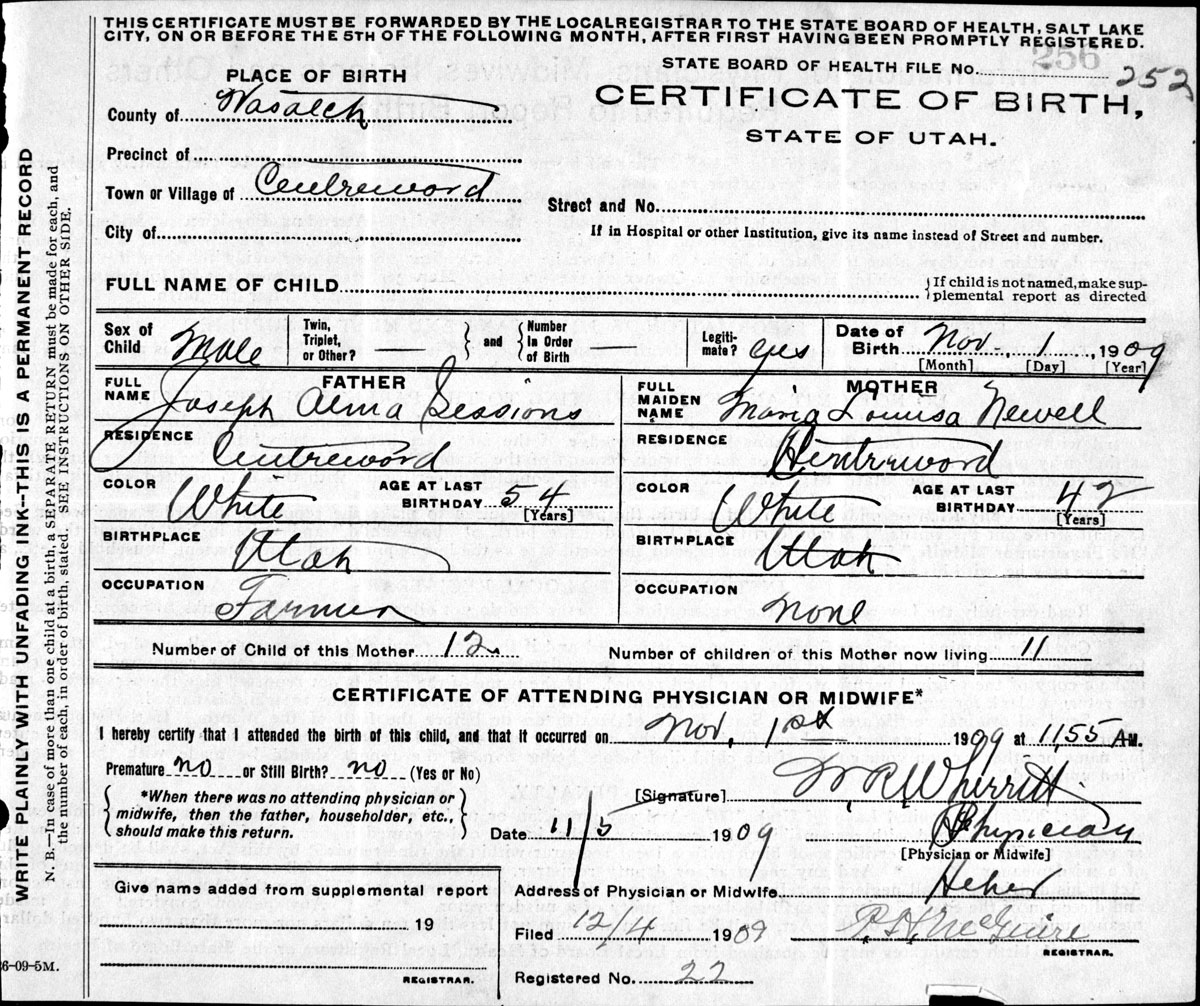 THIS CERTIFICATE MUST BE FORWARDED BY THE LOCAL REGISTRAR TO THE STATE BOARD OF HEALTH, SALT LAKE
CITY, ON OR BEFORE THE 5TH OF THE FOLLOWING MONTH, AFTER FIRST HAVING BEEN PROMPTLY REGISTERED.
256
STATE BOARD OF HEALTH FILE No. 252
PLACE OF BIRTH
CERTIFICATE OF BIRTH,
STATE OF UTAH.
County of Wasatch
Precinct of
Town or Village of Centreword
Street and No.
City of
If in Hospital or other Institution, give its name instead of Street and number.
FULL NAME OF CHILD
If child is not named, make sup-
plemental report as directed
Sex of Child Male
Twin, Triplet, or Other?
and
Number In Order of Birth
Legiti-mate? yes
Date of Birth Nov 1 1909
[Month] [Day] [Year]
FATHER
FULL NAME Joseph Alma Sessions
RESIDENCE Centreword
COLOR White AGE AT LAST BIRTHDAY 54 [Years]
BIRTHPLACE Utah
OCCUPATION Farmer
MOTHER
FULL MAIDEN NAME Maria Louisa Newell
RESIDENCE Centreword
COLOR White AGE AT LAST BIRTHDAY 42 [Years]
BIRTHPLACE Utah
OCCUPATION none
Number of Child of this Mother 12
Number of children of this Mother now living 11
CERTIFICATE OF ATTENDING PHYSICIAN OR MIDWIFE*
I hereby certify that I attended the birth of this child, and that it occurred on Nov, 1st 1909 at 11,55 A M.
Premature no or Still Birth? no (Yes or No)
*When there was no attending physician or
midwife, then the father, householder, etc.,
should make this return.
[Signature] W R Wherritt
Date 11/5 1909
Physician
[Physician or Midwife]
Give name added from supplemental report
19
REGISTRAR.
Address of Physician or Midwife Heber
Filed 12/4 1909
REGISTRAR.
Registered No. 22
WRITE PLAINLY WITH UNFADING INK--THIS IS A PERMANENT RECORD
N. B.--In case of more than one child at a birth, a SEPARATE RETURN must be made for each, and
the number of each, in order of birth, stated. SEE INSTRUCTIONS ON OTHER SIDE.
6-09-5M.